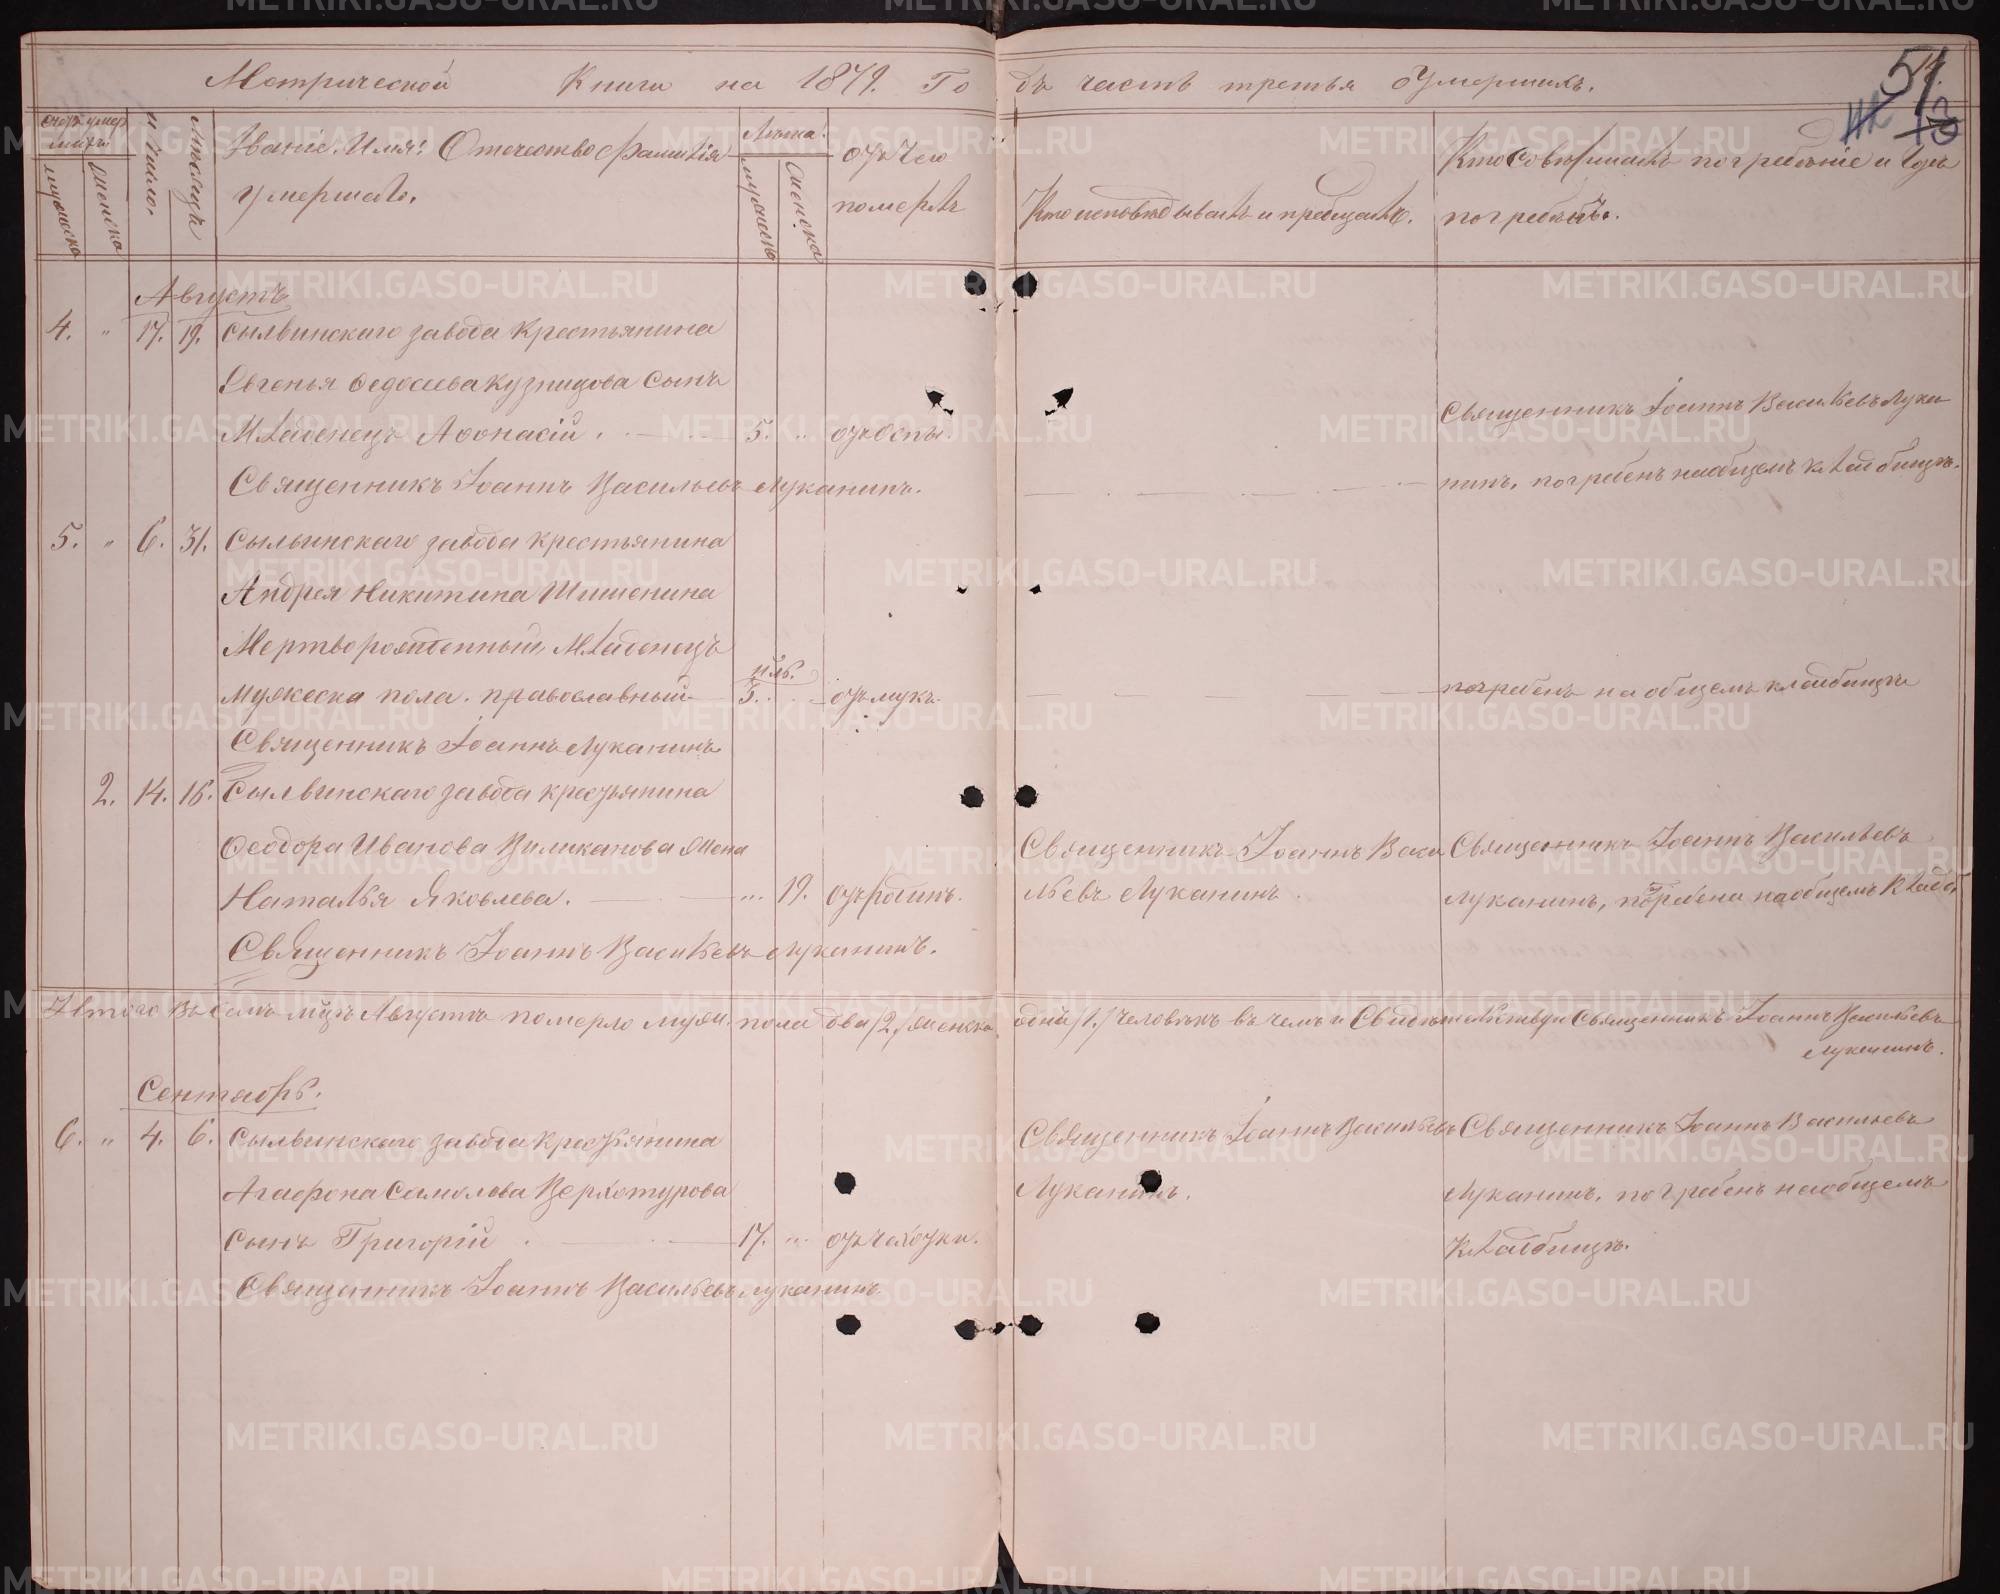 Метрической Книги на 1879. Годъ часть третья оумершихъ.
51
счетъ умершихъ
мужеска
женска
число.
Мѣсяцъ
Званіе. Имя. Отечество фамилія
умершаго.
Лѣта.
мужеска
женска
отъ чего
померъ
Кто исповѣдывалъ и пріобщалъ.
Кто совершалъ погребеніе и гдѣ
погребенъ.
Августъ
4. " 17. 19. Сылвинскаго завода крестьянина
Евгенья Ѳедосеева Кузнецова сынъ
Младенецъ Аѳонасій. 5. " отъ оспы.
Священникъ Іоаннъ Васильевъ Луканинъ.
Священникъ Іоаннъ Васильевъ Лука
нинъ, погребенъ на общемъ кладбищѣ.
5. " 6. 31. Сылвинскаго завода крестьянина
Андрея Никитина Шишенина
Мертворожденный Младенецъ
мужеска пола. православный 5. отъ мукъ.
погребенъ на общемъ кладбищѣ
Священникъ Іоаннъ Луканинъ
2. 14. 16. Сылвинскаго завода крестьянина
Ѳеодора Иванова Виликанова жена
Наталья Яковлева. " 19. отъ родинъ.
Священникъ Іоаннъ Васильевъ Луканинъ.
Священникъ Іоаннъ Васи
льевъ Луканинъ.
Священникъ Іоаннъ Васильевъ
Луканинъ, погребена на общемъ кладб.
Итого въ семъ мѣцѣ Августѣ померло муж. пола два /2,/ женска одна /1./ человѣкъ въ чемъ и свидѣтельствую Священникъ Іоаннъ Васильевъ
Луканинъ.
Сентябрь.
6. " 4. 6. Сылвинскаго завода крестьянина
Агафона Самолова Верхотурова
сынъ Григорій. 17. " отъ чахотки.
Священникъ Іоаннъ Васильевъ Луканинъ
Священникъ Іоаннъ Васильевъ
Луканинъ.
Священникъ Іоаннъ Васильевъ
Луканинъ, погребенъ на общемъ
кладбищѣ.
METRIKI.GASO-URAL.RU